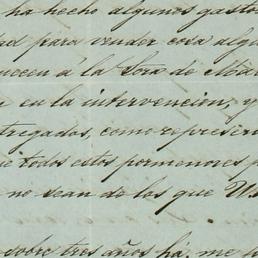 ha hecho algunos gastos
para vender cosa algu
necen á la Sora de
en la intervencion, y
tregados, como represen
ue todos estos pormenores p
no sean de los que U.
sobre tres años há, me p